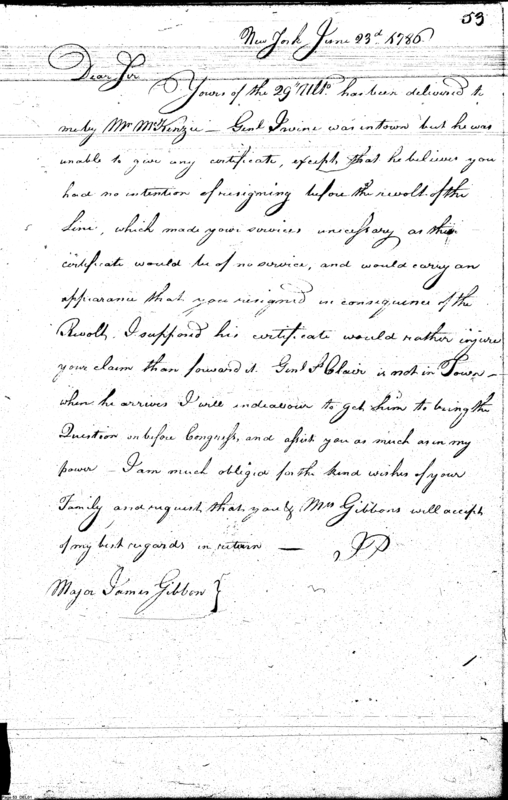 53
New York June 23d 1786
Dear Sir
Yours of the 29th Ulto. has been delivered to
me by Mr McKenzie — Genl Irvine was in town but he was
unable to give any certificate, except that he believes you
had no intention of resigning before the revolt of the
Line, which made your services unnecessary as this
certificate would be of no service, and would carry an
appearance that you resigned in consequence of the
Revolt. I supposed his certificate would rather injure
your claim than forward it. Genl St Clair is not in Town —
when he arrives I will endeavour to get him to bring the
Question on before Congress, and assist you as much as in my
power — I am much obliged for the kind wishes of your
Family and request that you & Mrs Gibbons will accept
of my best regards in return —
Major James Gibbon }